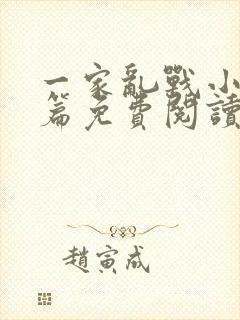 一家亂戰小
篇免費閱讀
趙寅成